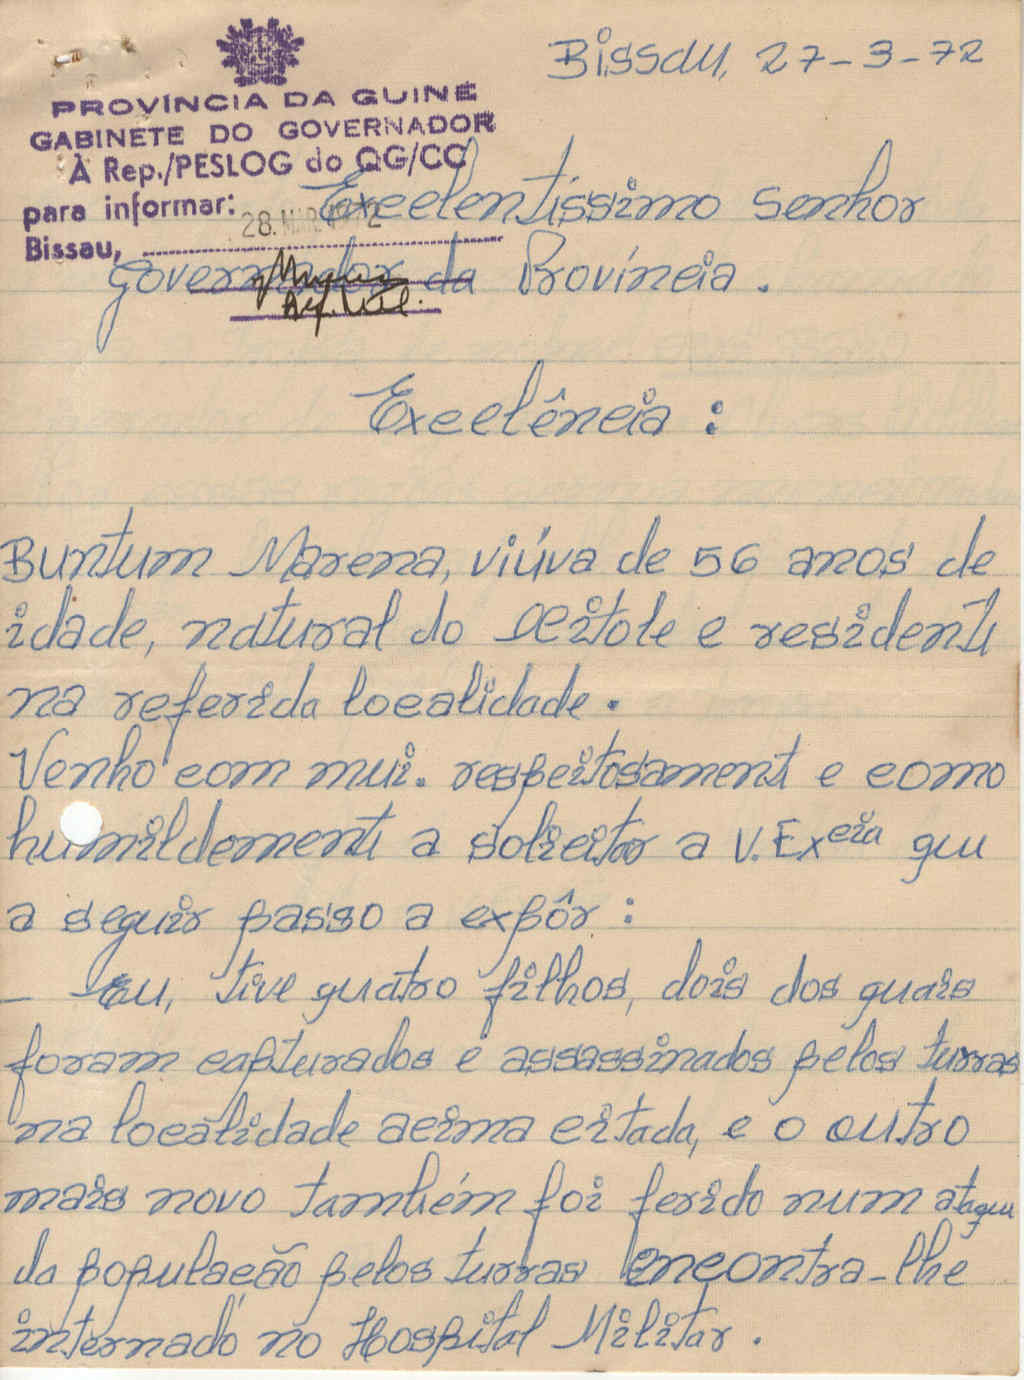 Bissau, 27-3-72
PROVÍNCIA DA GUINÉ
GABINETE DO GOVERNADOR
À Rep./PESLOG do QG/CC
para informar:
28. MAR 1972
Bissau,
Excelentíssimo Senhor
Governador da Província.
Excelência:
Buntum Marena, viúva de 56 anos de
idade, natural do Xitole e residente
na referida localidade.
Venho com mui. respeitosamente e como
humildemente a solicitar a V. Excia que
a seguir passo a expôr:
- Eu, tive quatro filhos, dois dos quais
foram capturados e assassinados pelos turras
na localidade acima citada, e o outro
mais novo também foi ferido num ataque
da população pelos turras encontra-lhe
internado no Hospital Militar.